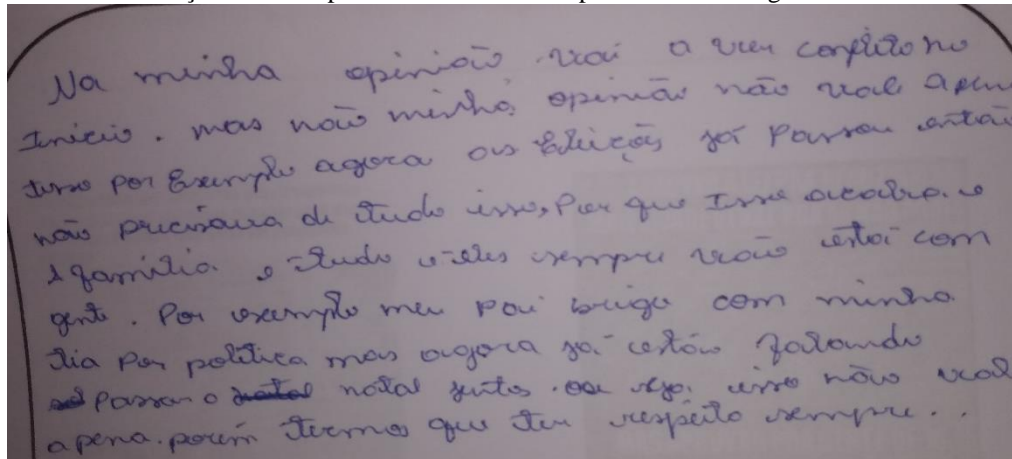 Na minha opinião vai a ver conflito no
Início. mas não minha opinião não vale apena
isso por Exemplo agora as Eleições já Passou então
não precisava de tudo isso, Por que Isso acaba. e
a família e tudo e eles sempre vão está com
gente. Por exemplo meu Pai brigo com minha
tia Por política mas agora já estão falando
Passar o natal juntos. ou seja isso não vale
apena. porém termos que ter respeito sempre..